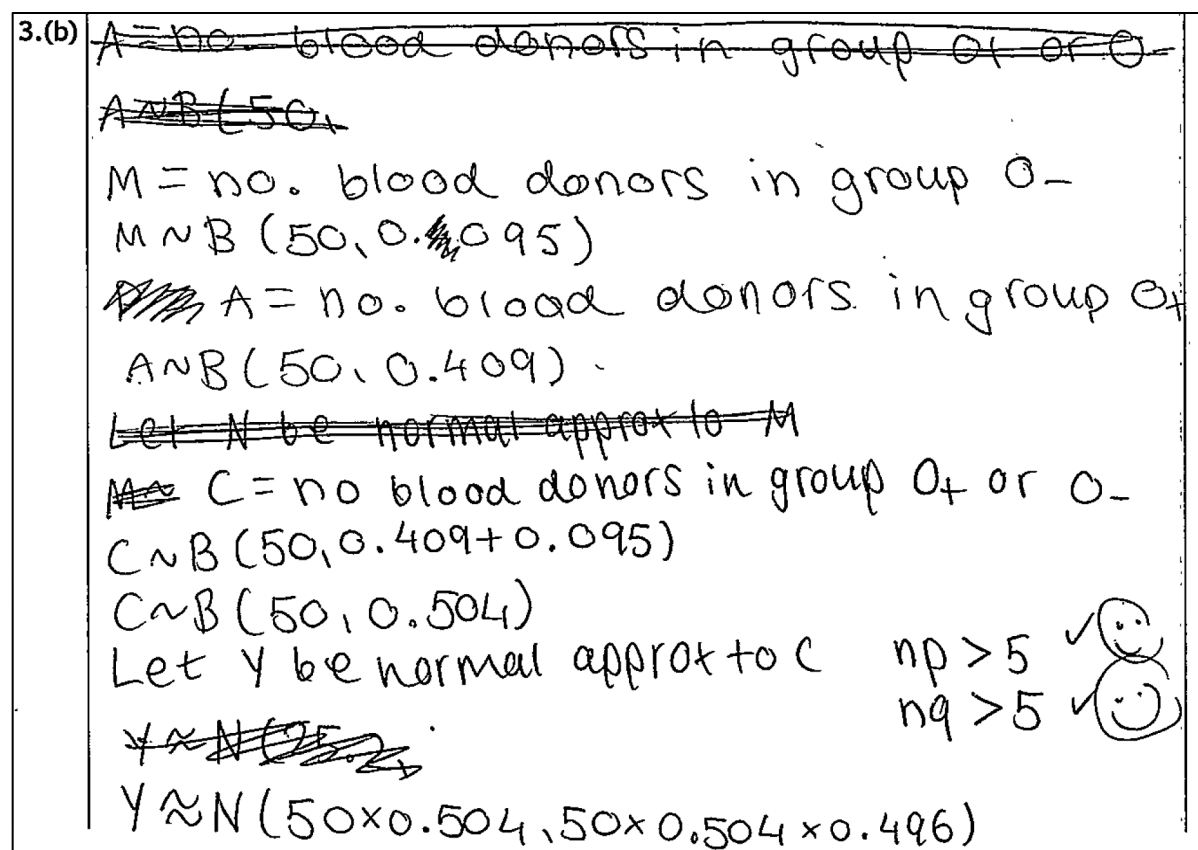 3.(b)
A = no. blood donors in group O+ or O-
A~B(50,
M = no. blood donors in group O-
M~B (50, 0.095)
A = no. blood donors in group O+
A~B(50, 0.409).
Let N be normal approx to M
M~ C = no blood donors in group O+ or O-
C~B (50, 0.409+0.095)
C~B (50, 0.504)
Let Y be normal approx to C np > 5 ✓
nq > 5 ✓
Y≈N(25.2,
Y≈N(50×0.504, 50×0.504×0.496)